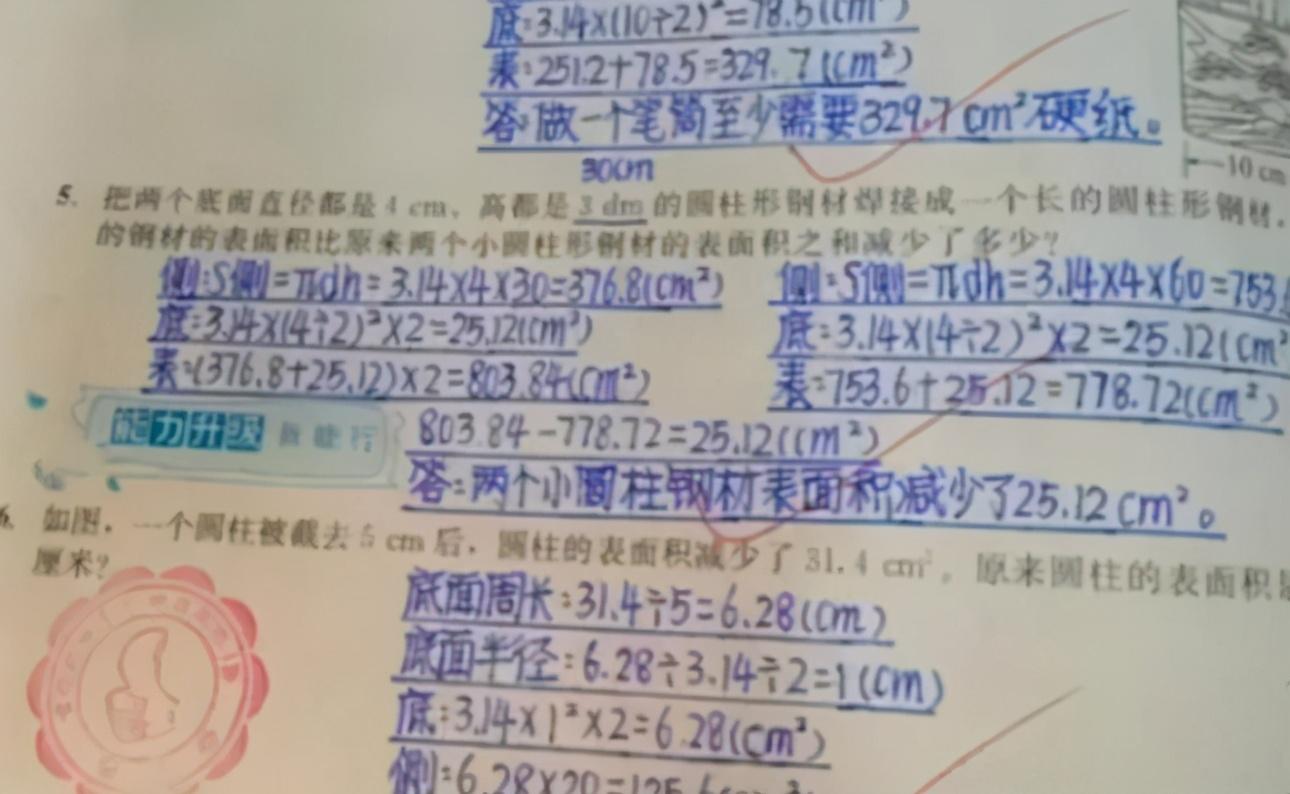 底:3.14×(10÷2)²=78.5(cm²)
表:251.2+78.5=329.7(cm²)
答:做一个笔筒至少需要329.7cm²硬纸。
10 cm
30cm
5. 把两个底面直径都是 4 cm、高都是 3 dm 的圆柱形钢材焊接成一个长的圆柱形钢材,
的钢材的表面积比原来两个小圆柱形钢材的表面积之和减少了多少?
侧:S侧=πdh=3.14×4×30=376.8(cm²)
底:3.14×(4÷2)²×2=25.12(cm²)
表:(376.8+25.12)×2=803.84(cm²)
侧:S侧=πdh=3.14×4×60=753.6
底:3.14×(4÷2)²×2=25.12(cm²
表:753.6+25.12=778.72(cm²)
能力升级
803.84-778.72=25.12(cm²)
答:两个小圆柱钢材表面积减少了25.12cm²。
6. 如图,一个圆柱被截去 5 cm 后,圆柱的表面积减少了 31.4 cm²。原来圆柱的表面积是
厘米?
底面周长:31.4÷5=6.28(cm)
底面半径:6.28÷3.14÷2=1(cm)
底:3.14×1²×2=6.28(cm²)
侧:6.28×20=125.6(cm²)